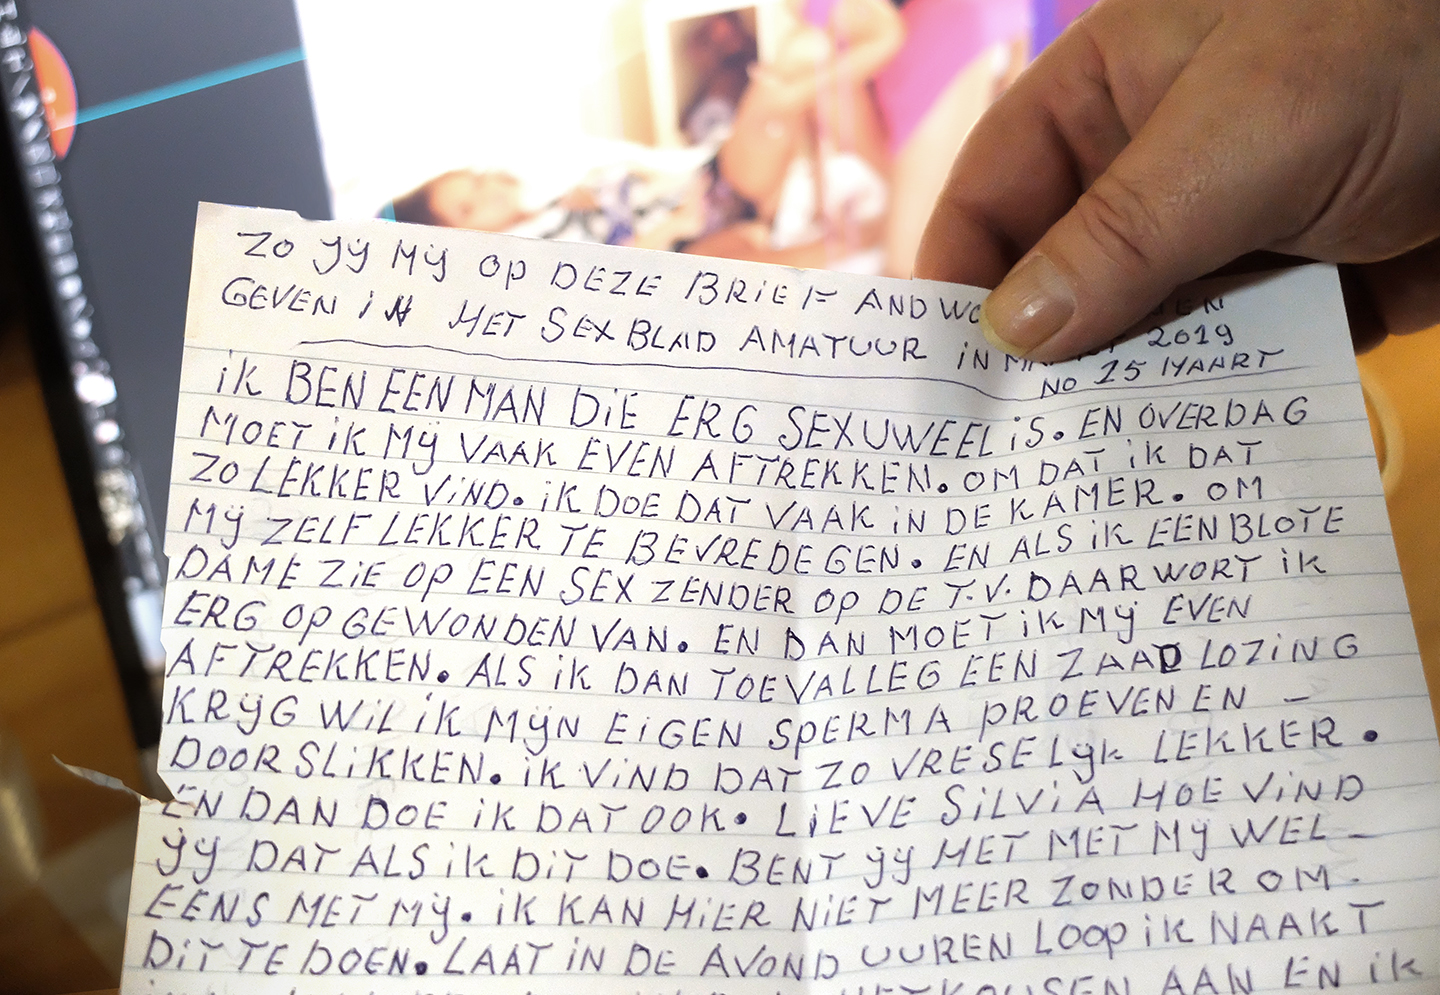 ZO JIJ MIJ OP DEZE BRIEF
GEVEN iN HET SEXBLAD AMATUUR iN 2019
NO 25 MAART
iK BEN EEN MAN DiE ERG SEXUWEEL iS. EN OVERDAG
MOET iK MIJ VAAK EVEN AFTREKKEN. OM DAT iK DAT
ZO LEKKER ViND. iK DOE DAT VAAK iN DE KAMER. OM
MIJ ZELF LEKKER TE BEVREDEGEN. EN ALS iK EEN BLOTE
DAME ZiE OP EEN SEX ZENDER OP DE T.V. DAAR WORT iK
ERG OPGEWONDEN VAN. EN DAN MOET iK MIJ EVEN
AFTREKKEN. ALS iK DAN TOEVALLEG EEN ZAAD LOZiNG
KRIJG WiL iK MIJN EiGEN SPERMA PROEVEN EN –
DOOR SLiKKEN. iK ViND DAT ZO VRESELIJK LEKKER.
EN DAN DOE iK DAT OOK. LiEVE SiLViA HOE ViND
JIJ DAT ALS iK DiT DOE. BENT JIJ HET MET MIJ WEL –
EENS MET MIJ. iK KAN HiER NiET MEER ZONDER OM.
DiT TE DOEN. LAAT iN DE AVOND UUREN LOOP iK NAAKT
AAN EN iK